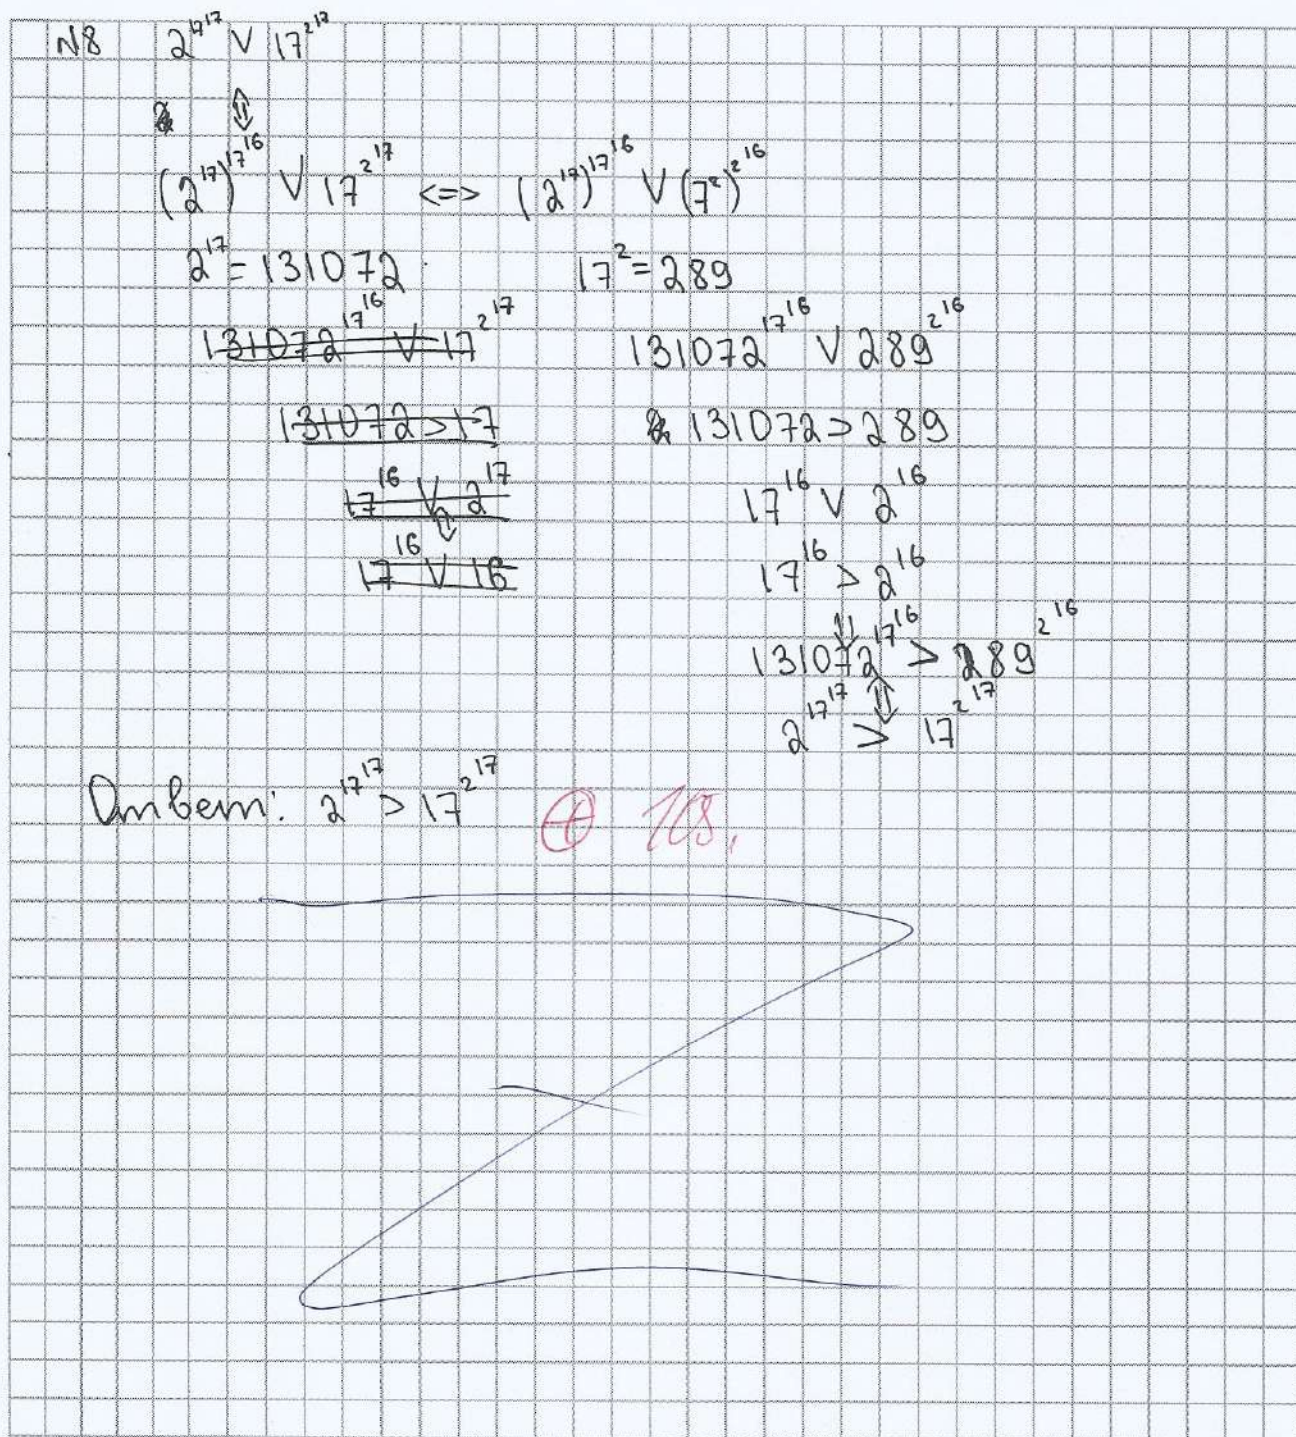 N8 2^17^17 V 17^2^17
⇕
(2^17)^17^16 V 17^2^17 <=> (2^17)^17^16 V (7^2)^2^16
2^17 = 131072 17^2 = 289
131072^17^16 V 17^2^17 131072^17^16 V 289^2^16
131072 > 17 131072 > 289
17^16 V 2^17 17^16 V 2^16
⇕
17^16 V 16 17^16 > 2^16
⇓
131072^17^16 > 289^2^16
⇕
2^17^17 > 17^2^17
Ответ: 2^17^17 > 17^2^17 ⊕ 10б.